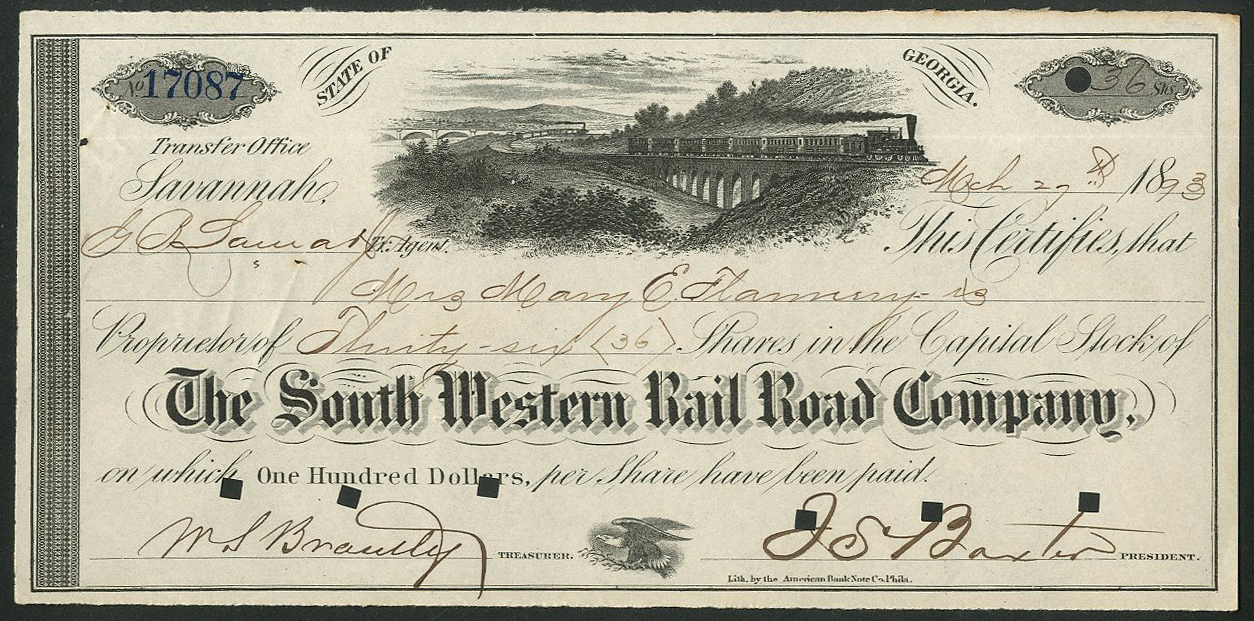 No 17087
STATE OF
GEORGIA.
36 Shs.
Transfer Office
Savannah,
Mch 29th 1893
Tr. Agent.
This Certifies, that
Mrs Mary E. Flannery is
Proprietor of Thirty-six (36) Shares in the Capital Stock of
The South Western Rail Road Company,
on which One Hundred Dollars, per Share have been paid.
W S Brantly TREASURER.
J S Baxter PRESIDENT.
Lith. by the American Bank Note Co. Phila.